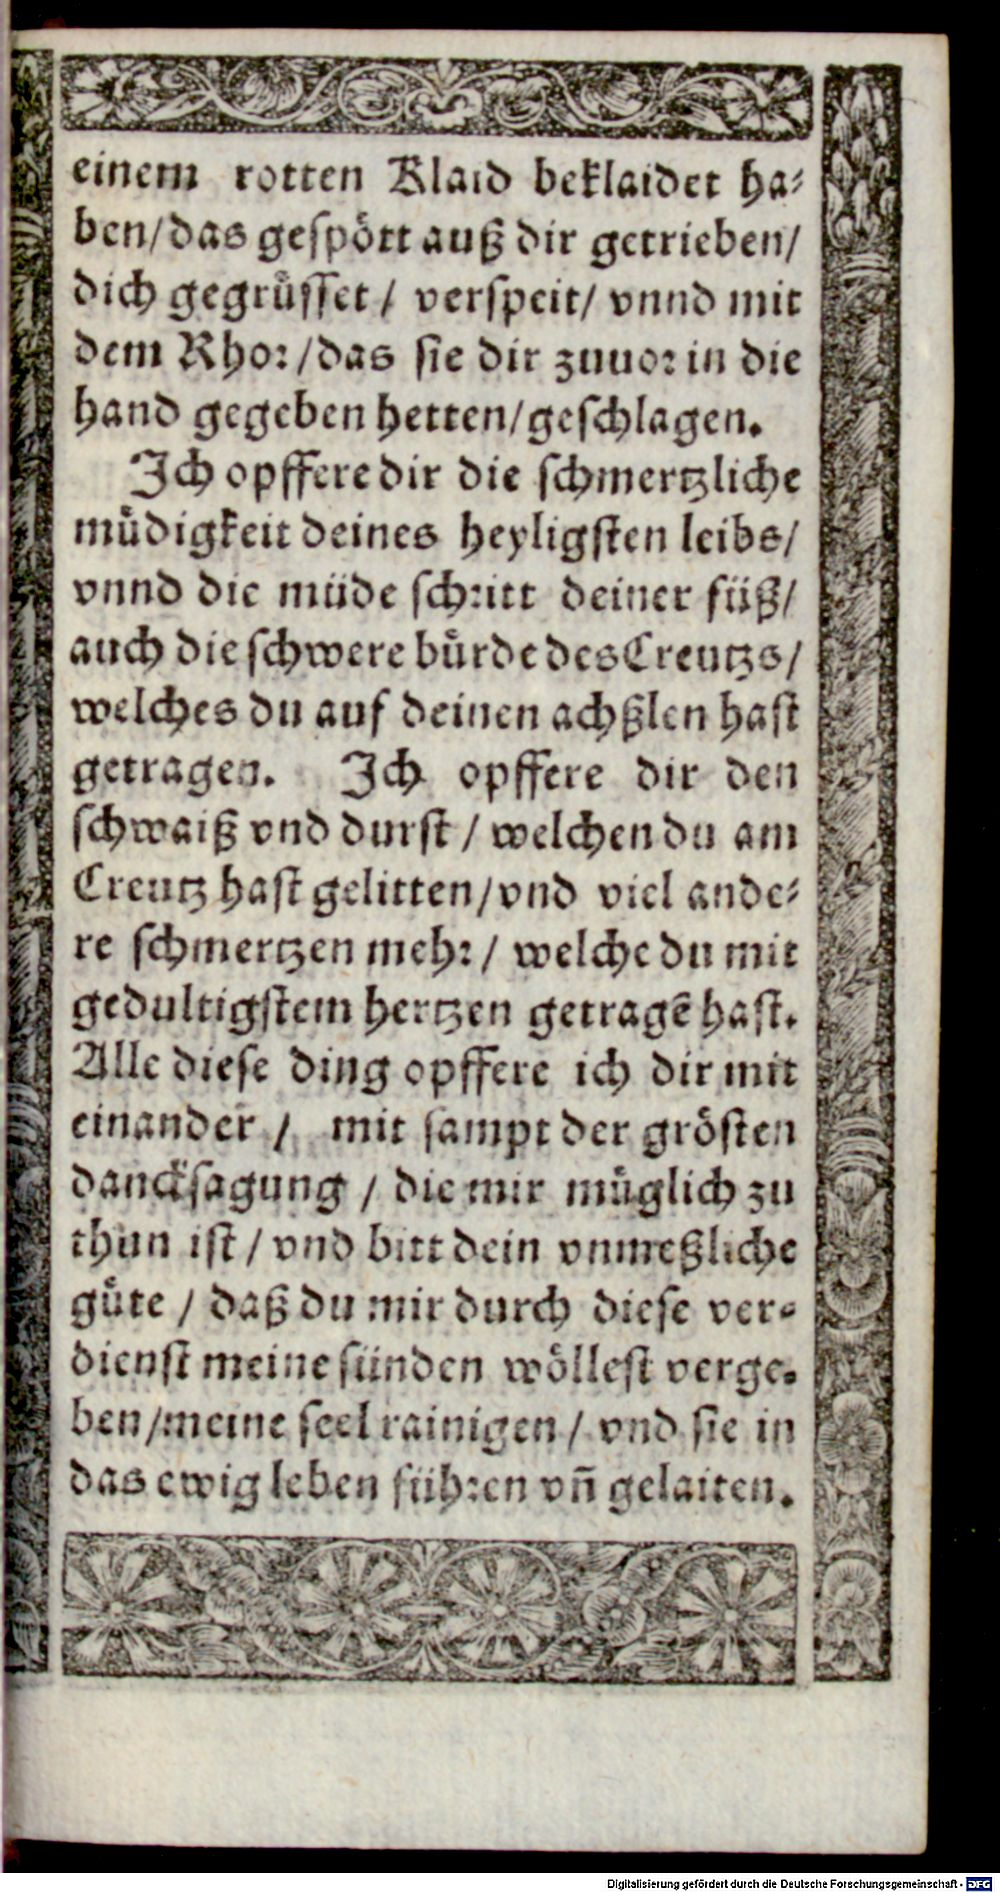 einem rotten Klaid beklaidet ha⸗
ben/das gespött auß dir getrieben/
dich gegrüsset / verspeit/ vnnd mit
dem Rhor/das sie dir zuuor in die
hand gegeben hetten/geschlagen.
Ich opffere dir die schmertzliche
müdigkeit deines heyligsten leibs/
vnnd die müde schritt deiner füß/
auch die schwere bürde des Creutzs/
welches du auf deinen achßlen hast
getragen. Ich opffere dir den
schwaiß vnd durst / welchen du am
Creutz hast gelitten/vnd viel ande⸗
re schmertzen mehr / welche du mit
gedultigstem hertzen getragē hast.
Alle diese ding opffere ich dir mit
einander / mit sampt der grösten
dancksagung / die mir müglich zu
thun ist / vnd bitt dein vnmeßliche
güte / daß du mir durch diese ver⸗
dienst meine sünden wöllest verge⸗
ben/meine seel rainigen / vnd sie in
das ewig leben führen vn̄ gelaiten.
Digitalisierung gefördert durch die Deutsche Forschungsgemeinschaft - DFG